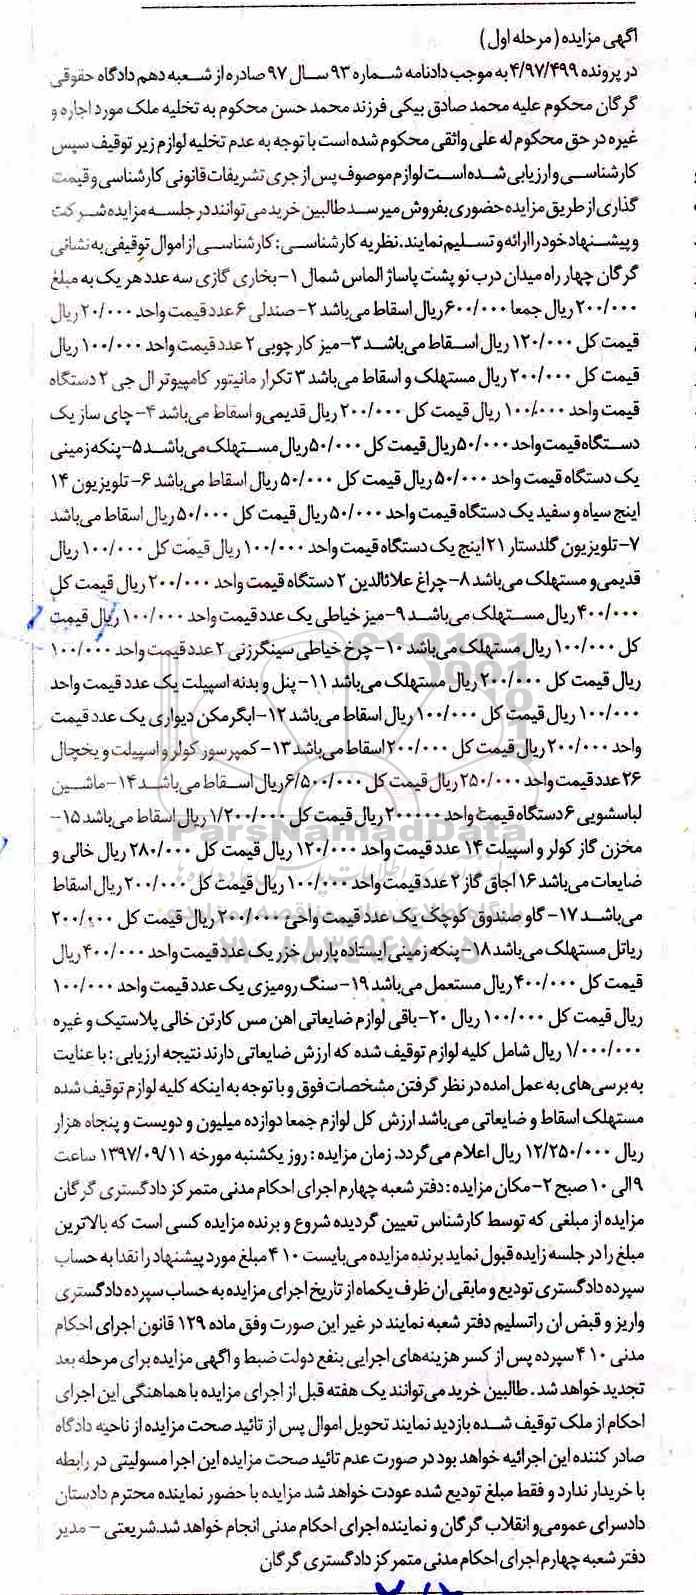 اگهی مزایده (مرحله اول)
در پرونده ۴/۹۷/۴۹۹ به موجب دادنامه شماره ۹۳ سال ۹۷ صادره از شعبه دهم دادگاه حقوقی
گرگان محکوم علیه محمد صادق بیکی فرزند محمد حسن محکوم به تخلیه ملک مورد اجاره و
غیره در حق محکوم له علی واثقی محکوم شده است با توجه به عدم تخلیه لوازم زیر توقیف سپس
کارشناسی و ارزیابی شده است لوازم موصوف پس از جری تشریفات قانونی کارشناسی و قیمت
گذاری از طریق مزایده حضوری بفروش میرسد طالبین خرید می‌توانند در جلسه مزایده شرکت
و پیشنهاد خود را ارائه و تسلیم نمایند. نظریه کارشناسی: کارشناسی از اموال توقیفی به نشانی
گرگان چهار راه میدان درب نو پشت پاساژ الماس شمال ۱- بخاری گازی سه عدد هر یک به مبلغ
۲۰۰/۰۰۰ ریال جمعا ۶۰۰/۰۰۰ ریال اسقاط می‌باشد ۲- صندلی ۶ عدد قیمت واحد ۲۰/۰۰۰ ریال
قیمت کل ۱۲۰/۰۰۰ ریال اسقاط می‌باشد ۳- میز کار چوبی ۲ عدد قیمت واحد ۱۰۰/۰۰۰ ریال
قیمت کل ۲۰۰/۰۰۰ ریال مستهلک و اسقاط می‌باشد ۳ تکرار مانیتور کامپیوتر ال جی ۲ دستگاه
قیمت واحد ۱۰۰/۰۰۰ ریال قیمت کل ۲۰۰/۰۰۰ ریال قدیمی‌و اسقاط می‌باشد ۴- چای ساز یک
دستگاه قیمت واحد ۵۰/۰۰۰ ریال قیمت کل ۵۰/۰۰۰ ریال مستهلک می‌باشد ۵- پنکه زمینی
یک دستگاه قیمت واحد ۵۰/۰۰۰ ریال قیمت کل ۵۰/۰۰۰ ریال اسقاط می‌باشد ۶- تلویزیون ۱۴
اینج سیاه و سفید یک دستگاه قیمت واحد ۵۰/۰۰۰ ریال قیمت کل ۵۰/۰۰۰ ریال اسقاط می‌باشد
۷- تلویزیون گلدستار ۲۱ اینج یک دستگاه قیمت واحد ۱۰۰/۰۰۰ ریال قیمت کل ۱۰۰/۰۰۰ ریال
قدیمی‌و مستهلک می‌باشد ۸- چراغ علائالدین ۲ دستگاه قیمت واحد ۲۰۰/۰۰۰ ریال قیمت کل
۴۰۰/۰۰۰ ریال مستهلک می‌باشد ۹- میز خیاطی یک عدد قیمت واحد ۱۰۰/۰۰۰ ریال قیمت
کل ۱۰۰/۰۰۰ ریال مستهلک می‌باشد ۱۰- چرخ خیاطی سینگرزنی ۲ عدد قیمت واحد ۱۰۰/۰۰۰
ریال قیمت کل ۲۰۰/۰۰۰ ریال مستهلک می‌باشد ۱۱- پنل و بدنه اسپیلت یک عدد قیمت واحد
۱۰۰/۰۰۰ ریال قیمت کل ۱۰۰/۰۰۰ ریال اسقاط می‌باشد ۱۲- ابگرمکن دیواری یک عدد قیمت
واحد ۲۰۰/۰۰۰ ریال قیمت کل ۲۰۰/۰۰۰ اسقاط می‌باشد ۱۳- کمپرسور کولر و اسپیلت و یخچال
۲۶ عدد قیمت واحد ۲۵۰/۰۰۰ ریال قیمت کل ۶/۵۰۰/۰۰۰ ریال اسقاط می‌باشد ۱۴- ماشین
لباسشویی ۶ دستگاه قیمت واحد ۲۰۰۰۰۰ ریال قیمت کل ۱/۲۰۰/۰۰۰ ریال اسقاط می‌باشد ۱۵-
مخزن گاز کولر و اسپیلت ۱۴ عدد قیمت واحد ۱۲۰/۰۰۰ ریال قیمت کل ۲۸۰/۰۰۰ ریال خالی و
ضایعات می‌باشد ۱۶ اجاق گاز ۲ عدد قیمت واحد ۱۰۰/۰۰۰ ریال قیمت کل ۲۰۰/۰۰۰ ریال اسقاط
می‌باشد ۱۷- گاو صندوق کوچک یک عدد قیمت واحی ۲۰۰/۰۰۰ ریال قیمت کل ۲۰۰/۰۰۰
ریاتل مستهلک می‌باشد ۱۸- پنکه زمینی ایستاده پارس خزر یک عدد قیمت واحد ۴۰۰/۰۰۰ ریال
قیمت کل ۴۰۰/۰۰۰ ریال مستعمل می‌باشد ۱۹- سنگ رومیزی یک عدد قیمت واحد ۱۰۰/۰۰۰
ریال قیمت کل ۱۰۰/۰۰۰ ریال ۲۰- باقی لوازم ضایعاتی اهن مس کارتن خالی پلاستیک و غیره
۱/۰۰۰/۰۰۰ ریال شامل کلیه لوازم توقیف شده که ارزش ضایعاتی دارند نتیجه ارزیابی: با عنایت
به برسی‌های به عمل امده در نظر گرفتن مشخصات فوق و با توجه به اینکه کلیه لوازم توقیف شده
مستهلک اسقاط و ضایعاتی می‌باشد ارزش کل لوازم جمعا دوازده میلیون و دویست و پنجاه هزار
ریال ۱۲/۲۵۰/۰۰۰ ریال اعلام می‌گردد. زمان مزایده: روز یکشنبه مورخه ۱۳۹۷/۰۹/۱۱ ساعت
۹ الی ۱۰ صبح ۲- مکان مزایده: دفتر شعبه چهارم اجرای احکام مدنی متمرکز دادگستری گرگان
مزایده از مبلغی که توسط کارشناس تعیین گردیده شروع و برنده مزایده کسی است که بالاترین
مبلغ را در جلسه زایده قبول نماید برنده مزایده می‌بایست ۱۰ ۴ مبلغ مورد پیشنهاد را نقدا به حساب
سپرده دادگستری تودیع و مابقی ان ظرف یکماه از تاریخ اجرای مزایده به حساب سپرده دادگستری
واریز و قبض ان راتسلیم دفتر شعبه نمایند در غیر این صورت وفق ماده ۱۲۹ قانون اجرای احکام
مدنی ۱۰ ۴ سپرده پس از کسر هزینه‌های اجرایی بنفع دولت ضبط و اگهی مزایده برای مرحله بعد
تجدید خواهد شد. طالبین خرید می‌توانند یک هفته قبل از اجرای مزایده با هماهنگی این اجرای
احکام از ملک توقیف شده بازدید نمایند تحویل اموال پس از تائید صحت مزایده از ناحیه دادگاه
صادر کننده این اجرائیه خواهد بود در صورت عدم تائید صحت مزایده این اجرا مسولیتی در رابطه
با خریدار ندارد و فقط مبلغ تودیع شده عودت خواهد شد مزایده با حضور نماینده محترم دادستان
دادسرای عمومی‌و انقلاب گرگان و نماینده اجرای احکام مدنی انجام خواهد شد. شریعتی - مدیر
دفتر شعبه چهارم اجرای احکام مدنی متمرکز دادگستری گرگان
ParsNamadData